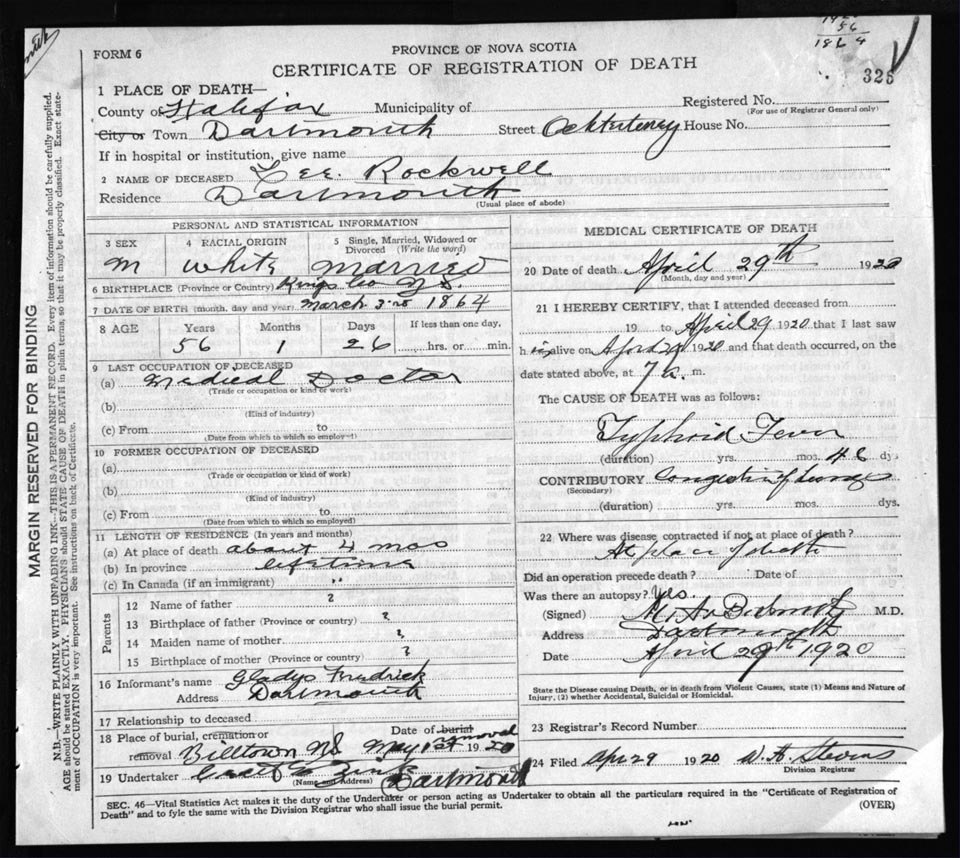 FORM 6
PROVINCE OF NOVA SCOTIA
CERTIFICATE OF REGISTRATION OF DEATH
1864
325
1 PLACE OF DEATH—
County of Halifax Municipality of Registered No.
(For use of Registrar General only)
City or Town Dartmouth Street House No.
If in hospital or institution, give name
2 NAME OF DECEASED Lee. Rockwell
Residence Dartmouth
(Usual place of abode)
PERSONAL AND STATISTICAL INFORMATION
3 SEX 4 RACIAL ORIGIN 5 Single, Married, Widowed or Divorced (Write the word)
M White Married
6 BIRTHPLACE (Province or Country) Kings Co N.S.
7 DATE OF BIRTH (month, day and year) March 3rd 1864
8 AGE Years Months Days If less than one day,
56 1 26 hrs. or min.
9 LAST OCCUPATION OF DECEASED
(a) Medical Doctor
(Trade or occupation or kind of work)
(b)
(Kind of industry)
(c) From to
(Date from which to which so employed)
10 FORMER OCCUPATION OF DECEASED
(a)
(Trade or occupation or kind of work)
(b)
(Kind of industry)
(c) From to
(Date from which to which so employed)
11 LENGTH OF RESIDENCE (In years and months)
(a) At place of death about 4 mos
(b) In province lifetime
(c) In Canada (if an immigrant) "
Parents
12 Name of father ?
13 Birthplace of father (Province or country) ?
14 Maiden name of mother ?
15 Birthplace of mother (Province or country) ?
16 Informant's name Gladys Fredrick
Address Dartmouth
17 Relationship to deceased
18 Place of burial, cremation or removal Billtown NS Date of burial removal May 1st 1920
19 Undertaker Dartmouth
(Name and Address)
MEDICAL CERTIFICATE OF DEATH
20 Date of death April 29th 1920
(Month, day and year)
21 I HEREBY CERTIFY, that I attended deceased from
19 to April 29 1920 that I last saw
him alive on April 29 1920 and that death occurred, on the
date stated above, at 7 a. m.
The CAUSE OF DEATH was as follows:
Typhoid Fever
(duration) yrs. mos. dys
CONTRIBUTORY Congestion of lungs
(Secondary)
(duration) yrs. mos. dys.
22 Where was disease contracted if not at place of death?
At place of death
Did an operation precede death? Date of
Was there an autopsy? Yes.
(Signed) M.D.
Address Dartmouth
Date April 29th 1920
State the Disease causing Death, or in death from Violent Causes, state (1) Means and Nature of Injury, (2) whether Accidental, Suicidal or Homicidal.
23 Registrar's Record Number
24 Filed Apr 29 1920
Division Registrar
SEC. 46—Vital Statistics Act makes it the duty of the Undertaker or person acting as Undertaker to obtain all the particulars required in the "Certificate of Registration of
Death" and to fyle the same with the Division Registrar who shall issue the burial permit.
(OVER)
MARGIN RESERVED FOR BINDING
N.B.—WRITE PLAINLY WITH UNFADING INK—THIS IS A PERMANENT RECORD. Every item of information should be carefully supplied.
AGE should be stated EXACTLY. PHYSICIANS should STATE CAUSE OF DEATH in plain terms, so that it may be properly classified. Exact statement of OCCUPATION is very important. See instructions on back of Certificate.